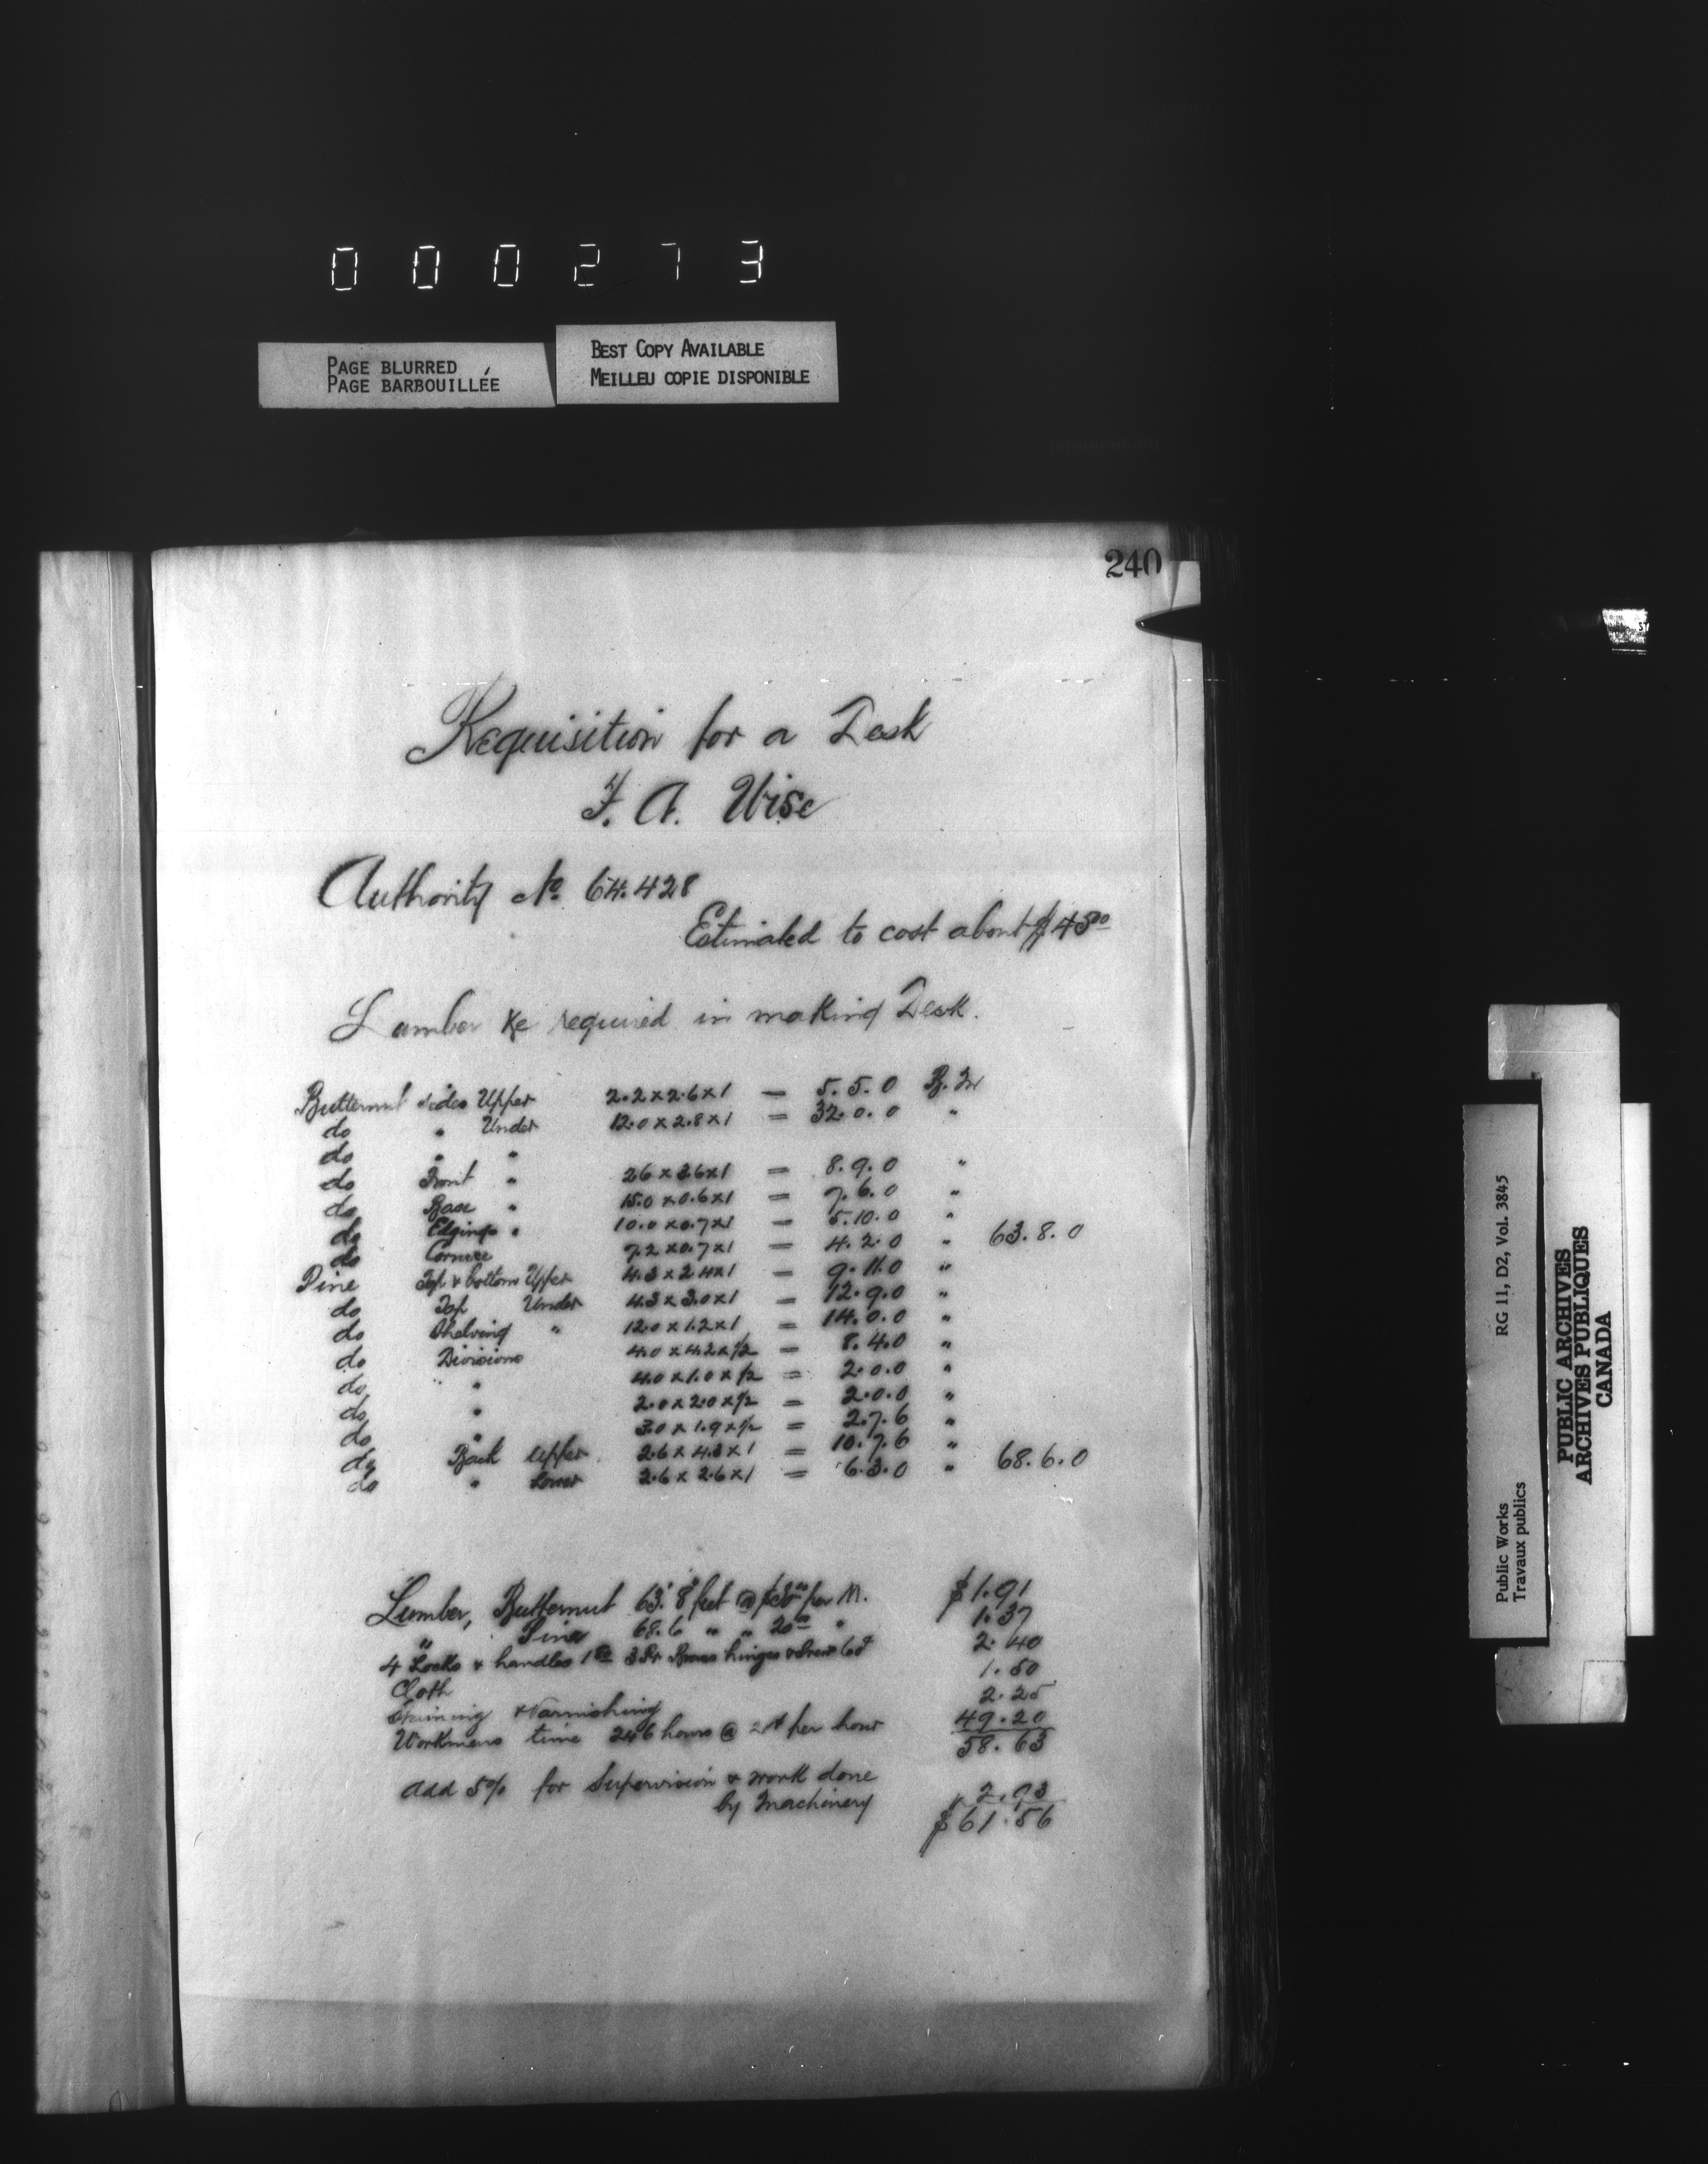 000273
PAGE BLURRED
PAGE BARBOUILLÉE
BEST COPY AVAILABLE
MEILLEU COPIE DISPONIBLE
240
Requisition for a Desk
F. A. Wise
Authority No. 64.428
Estimated to cost about $45.00
Lumber &c required in making Desk.
Butternut sides Upper 2.2 x 2.6 x 1 — 5. 5. 0 B. Mr
do " Under 12.0 x 2.8 x 1 = 32. 0. 0 "
do " "
do Front " 2.6 x 3.6 x 1 = 8. 9. 0 "
do Base " 15.0 x 0.6 x 1 = 7. 6. 0 "
do Edgings " 10.0 x 0.7 x 1 — 5. 10. 0 "
do Cornice 7.2 x 0.7 x 1 — 4. 2. 0 " 63. 8. 0
Pine Top & bottom Upper 4.3 x 2.4 x 1 — 9. 11. 0 "
do Top Under 4.3 x 3.0 x 1 — 12. 9. 0 "
do Shelving " 12.0 x 1.2 x 1 = 14. 0. 0 "
do Divisions 4.0 x 4.2 x 1/2 = 8. 4. 0 "
do " 4.0 x 1.0 x 1/2 = 2. 0. 0 "
do " 2.0 x 2.0 x 1/2 = 2. 0. 0 "
do " 3.0 x 1.9 x 1/2 = 2. 7. 6 "
do Back Upper 2.6 x 4.3 x 1 = 10. 7. 6 "
do " Lower 2.6 x 2.6 x 1 — 6. 3. 0 " 68. 6. 0
Lumber, Butternut 63' 8" feet @ $30.00 per M. $1.91
" Pine 68. 6 " " 20.00 " 1.37
4 Locks & handles 1.80 3 Pr Brass hinges & Screws 60¢ 2.40
Cloth 1.50
Staining & Varnishing 2.25
Workmens time 246 hours @ 20¢ per hour 49.20
58.63
Add 5% for Supervision & work done
by Machinery 2.93
$61.56
RG 11, D2, Vol. 3845
Public Works
Travaux publics
PUBLIC ARCHIVES
ARCHIVES PUBLIQUES
CANADA